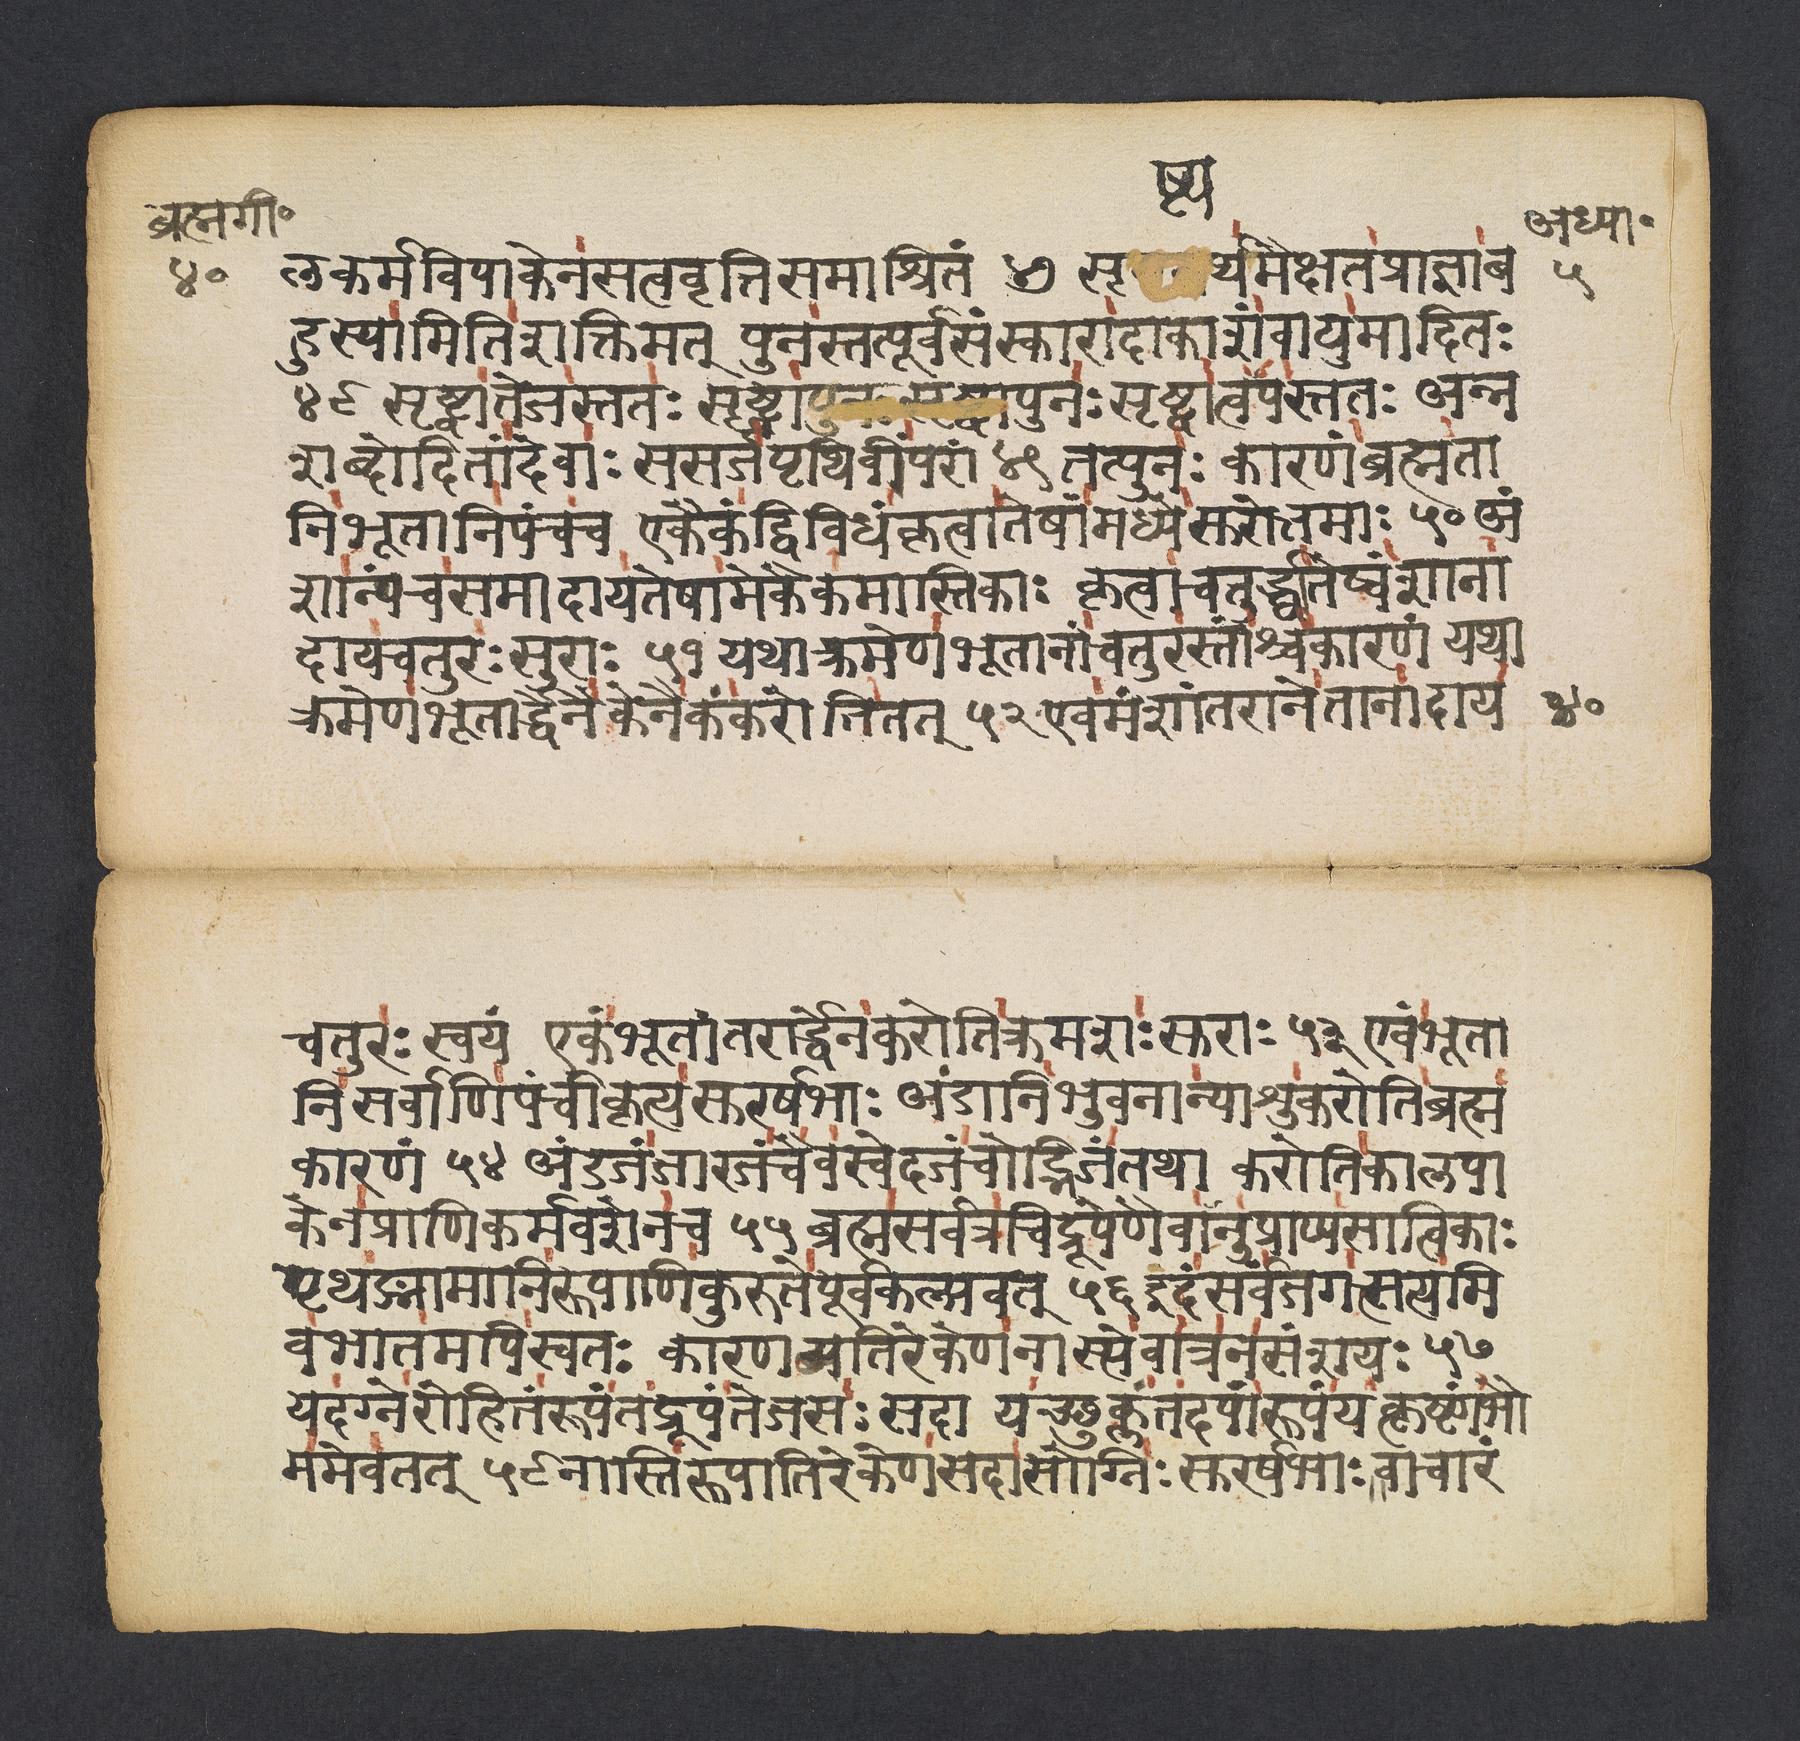 ष्ट्य
ब्रह्मगी॰
अध्या॰
४०
५
लकर्मविपाकेनसत्ववृत्तिसमाश्रितं ४७ सृ र्थमैक्षतप्राज्ञाब
हुस्यामितिशक्तिमत् पुनस्तत्पूर्वसंस्कारादाकाशंवायुमादितः
४८ सृष्ट्वातेजस्ततः सृष्ट्वापुनः सृष्ट्वापुनःसृष्ट्वात्वपस्ततः अन्न
शब्दोदितांदेवाः ससर्जपृथिवींपरां ४९ तत्पुनः कारणंब्रह्मता
निभूतानिपंचच एकैकंद्विविधंकृत्वातेषांमध्येसुरोत्तमाः ५० अं
शान्पंचसमादायतेषामेकैकमास्तिकाः कृत्वाचतुर्द्धातेष्वंशाना
दायचतुरःसुराः ५१ यथाक्रमेणभूतानांचतुरस्तांश्चकारणं यथा
क्रमेणभूतार्द्धेनैकेनैकंकरोतितत् ५२ एवमंशांतरानेतानादाय
४०
चतुरः स्वयं एकंभूतांतरार्द्धेनकरोतिक्रमशःसुराः ५३ एवंभूता
निसर्वाणिपंचीकृत्यसुरर्षभाः अंडानिभुवनान्याशुकरोतिब्रह्म
कारणं ५४ अंडजंजारजंचैवस्वेदजंचोद्भिजंतथा करोतिकालपा
केनप्राणिकर्मवशेनच ५५ ब्रह्मसर्वत्रचिद्रूपेणैवानुप्राप्यसात्विकाः
पृथङ्नामानिरूपाणिकुरुतेपूर्वकल्पवत् ५६ इदंसर्वंजगत्सत्यमि
वभातमपिस्वतः कारणव्यतिरेकेणनास्त्येवात्रनसंशयः ५७
यदग्नेरोहितंरूपंतद्रूपंतेजसः सदा यच्छुक्लंतदपांरूपंयत्कृष्णंभौ
ममेवतत् ५८ नास्तिरूपातिरेकेणसदासोग्निः सुरर्षभाः वाचारं